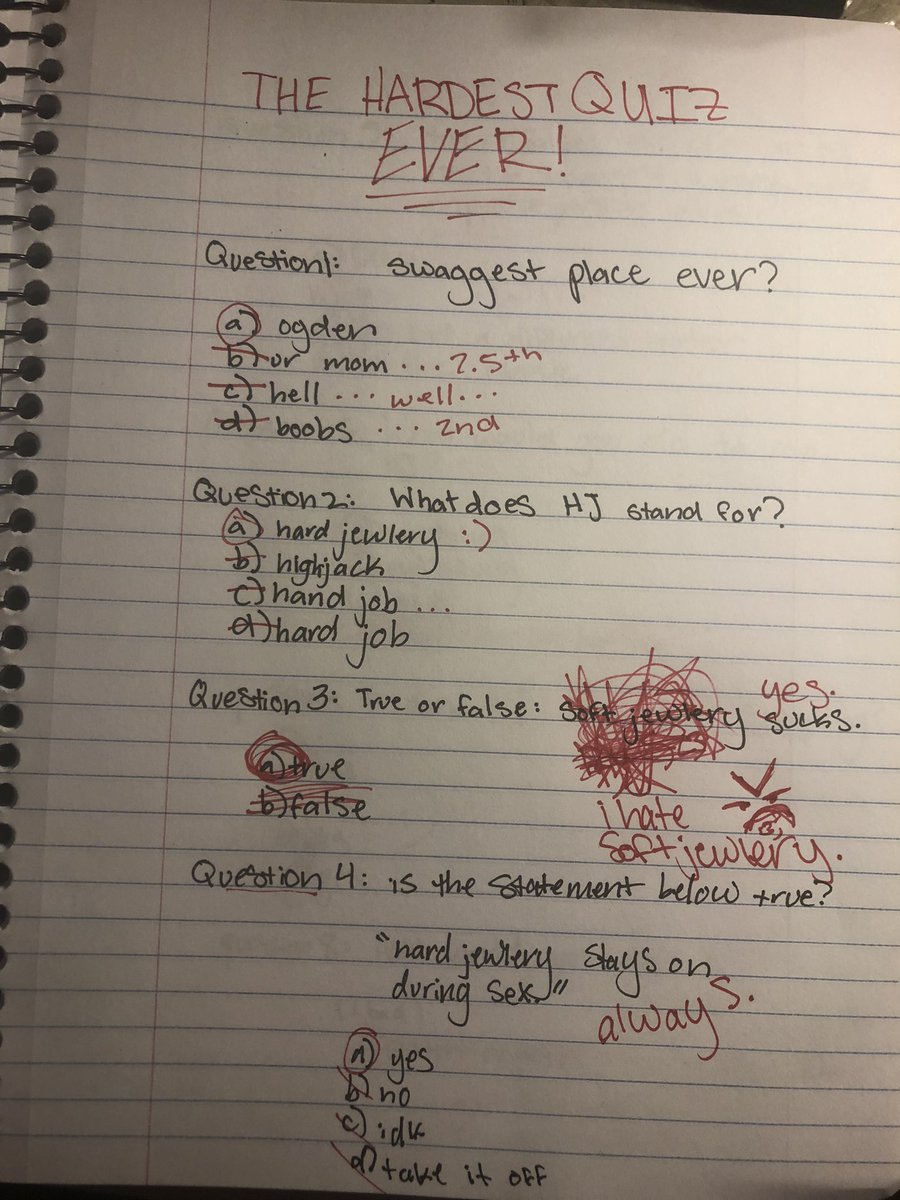 THE HARDEST QUIZ
EVER!
Question 1: swaggest place ever?
a) ogden
b) ur mom ... 2.5th
c) hell ... well...
d) boobs ... 2nd
Question 2: What does HJ stand for?
a) hard jewlery :)
b) highjack
c) hand job ...
d) hard job
Question 3: True or false: soft jewlery sucks.
yes.
a) true
b) false
i hate
soft jewlery.
Question 4: is the statement below true?
"hard jewlery stays on
during sex."
always.
a) yes
b) no
c) idk
d) take it off